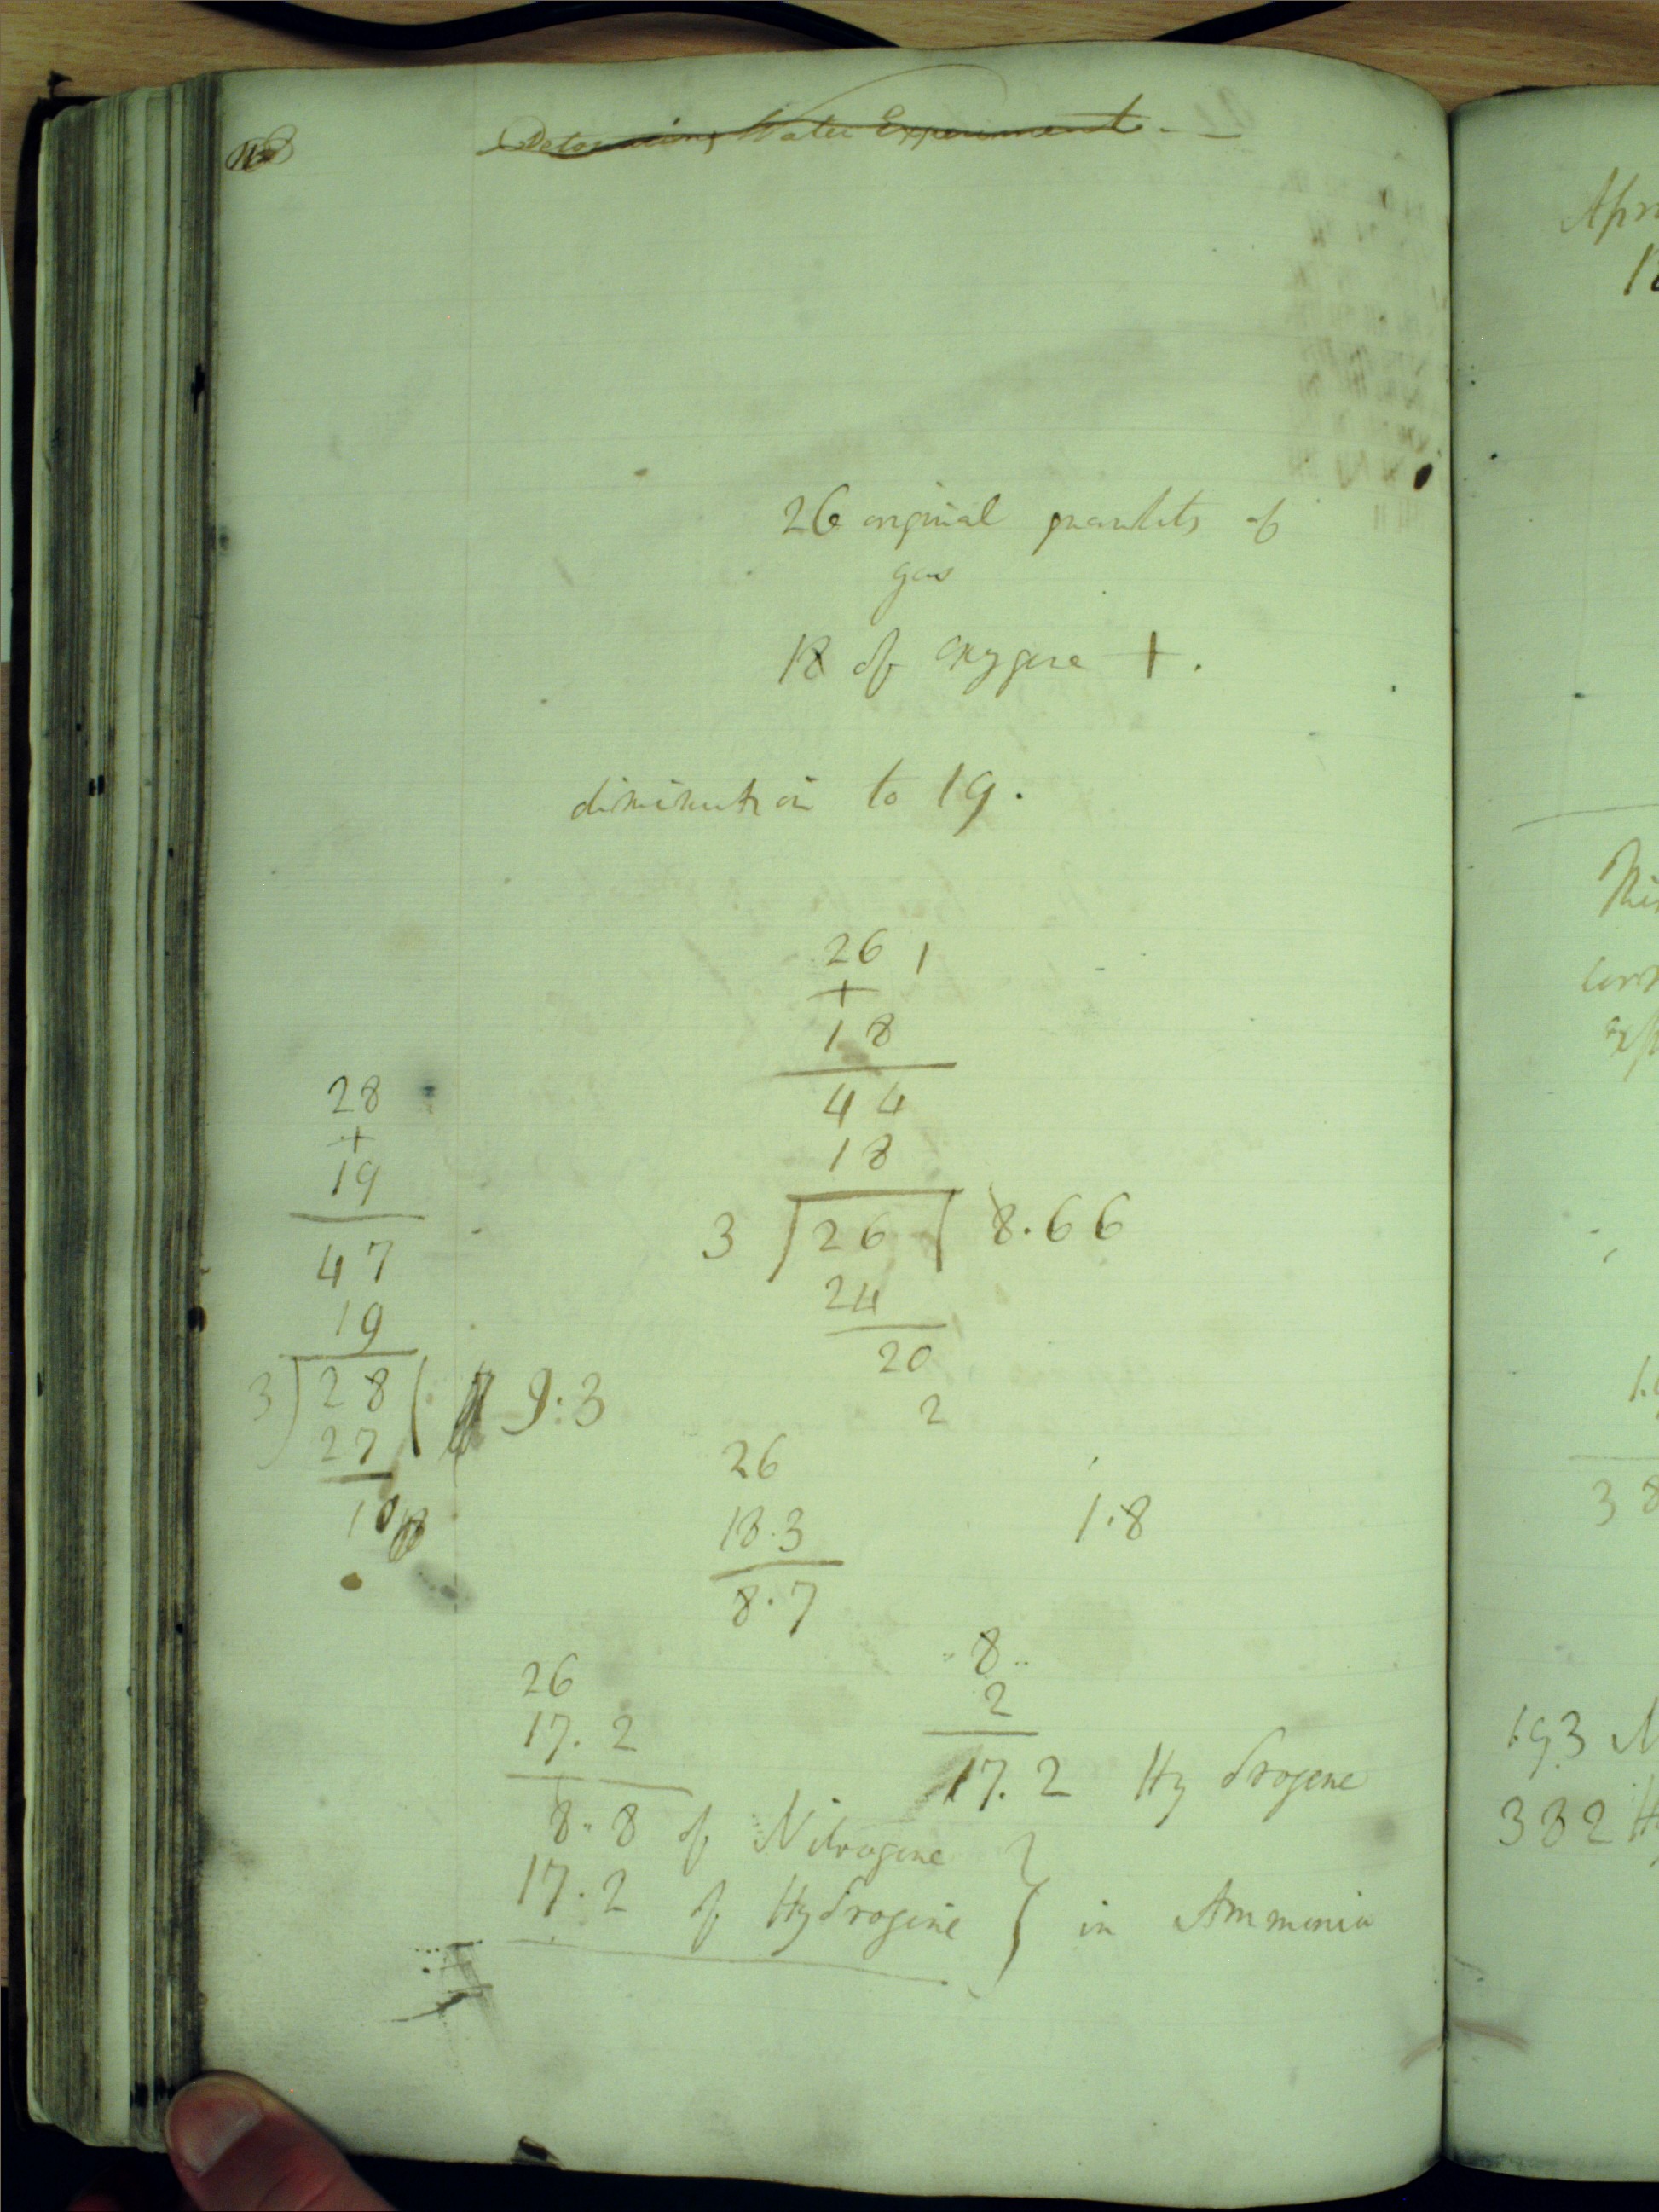 Detonating Water Experiment. -
26 original quantity of
gas
18 of oxygene + .
diminution to 19.
26 1
+
18
44
18
3 26 8.66
24
20
2
28
+
19
47
19
3 28 9:3
27
10
26
18.3
8.7
1.8
26
17.2
8.8 of Nitrogene
17.2 of Hydrogene } in Ammonia
8
2
17.2 Hydrogene
193
382